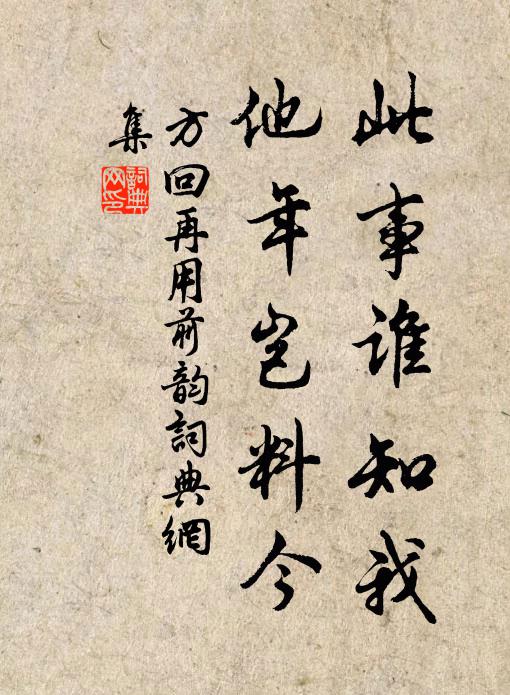 此事谁知我
他年岂料今
方回再用前韵词典網
集
詞典
网印